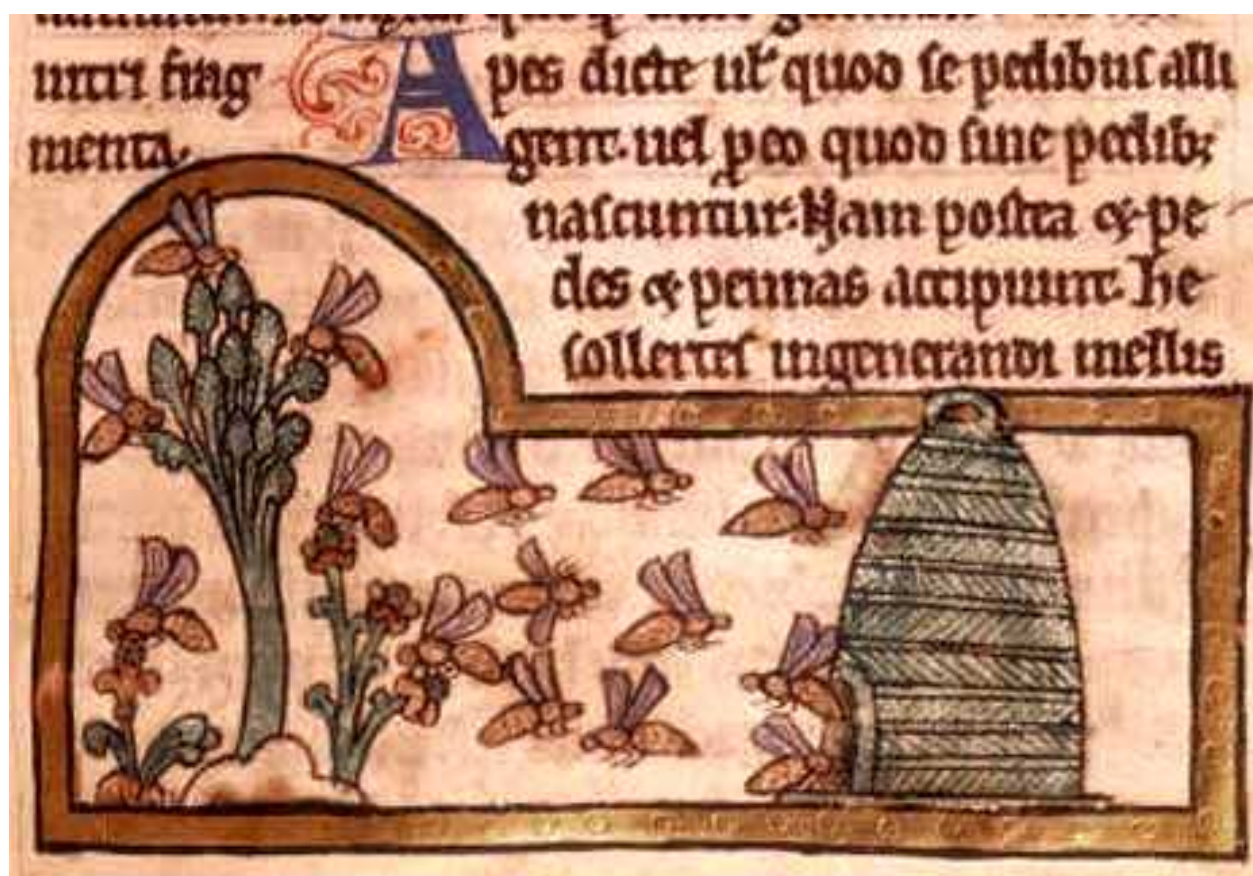 frag Apes dicte ut quod se pedibus alli
menta. gent. uel peo quod sine pedib;
nascuntur. Nam postea & pe
des & pennas accipiunt. he
sollertes ingenerandi mellis